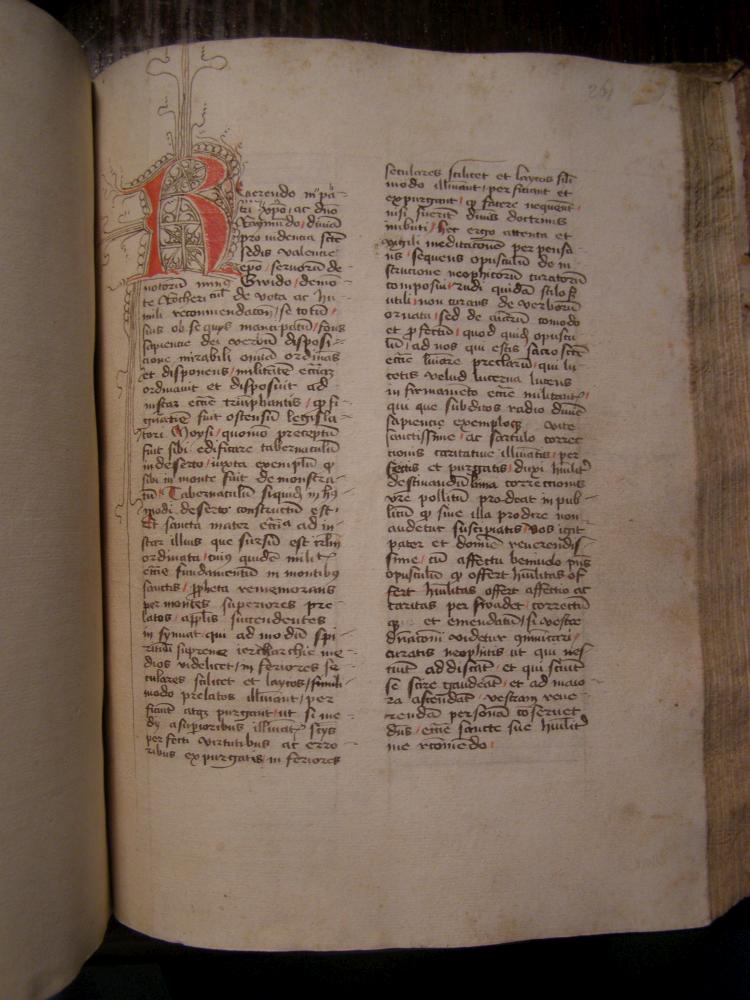 261
Reuerendo in pa-
tri xpo ac dno
Raymundo diuina
prouidencia scte
sedis valencie
epo seruorum de
Gwido demo-
te Rocherii cum de vota ac hu-
mili recommendatione se totum
suis obsequiis mancipatum fons
sapiencie dei verbum disposi-
cione mirabili omnia ordinans
et disponens militantem ecciam
ordinauit et disposuit ad
instar eccie triumphantis
fuit ostensum legisla-
tori Moysi quomodo preceptum
fuit sibi edificare tabernaculum
in deserto iuxta exemplum
sibi in monte fuit demonstra-
tum Tabernaculum siquidem in
modi deserto constructum est
Et sancta mater eccia ad in-
star illius que sursum est
ordinata cuius quidem
eccie fundamentum in montibus
sanctis ppheta rememorans
per montes superiores pre-
latos aplis succedentes
qui ad modum spi-
rituum supreme ierarchie me-
dios videlicet inferiores se
culares scilicet et laycos simili
modo prelatos illuminant per
ficiunt atqz purgant ut si me-
dii a superioribus illuminati
perfecti virtutibus ac erro
ribus expurgatis inferiores
seculares scilicet et laycos simi
modo illuminant perficiant et
expurgant facere nequeunt
nisi fuerint diuinis doctrinis
imbuti hec ergo attenta et
vigili meditacione perpensa
sequens opusculum de in-
structione neophitorum curatorum
composui rudi quidem stilo
utili non curans de verborum
ornatu sed de comodo
et profectu quod quidem opuscu
lum ad vos qui estis sacrosancte
eccie lumine preclarum qui lu
cetis velud lucerna lucens
in firmamento eccie militantis
qui que subditos radio diuine
sapiencie exemploqz vite
sanctissime ac sartulo correc
cionis caritatiue illuminatis per
ficitis et purgatis duxi
destinandum lima correctionis
vre pollitum prodeat in pub-
licum siue illa prodire non
audetur suscipiatis vos igitur
pater et domine reuerendis-
sime cum affectu beniuolo pns
opusculum offert humilitas of
fert humilitas offert affectio ac
caritas persuadet correctum
et emendatum si vestre
dnacioni videtur
curatis neophitis ut qui nes
ciunt addiscant et qui sciunt
se scire gaudeant et ad maio
ra ascendant vestram reue
rendam personam conseruet
dns eccie sancte sue
me recomendo